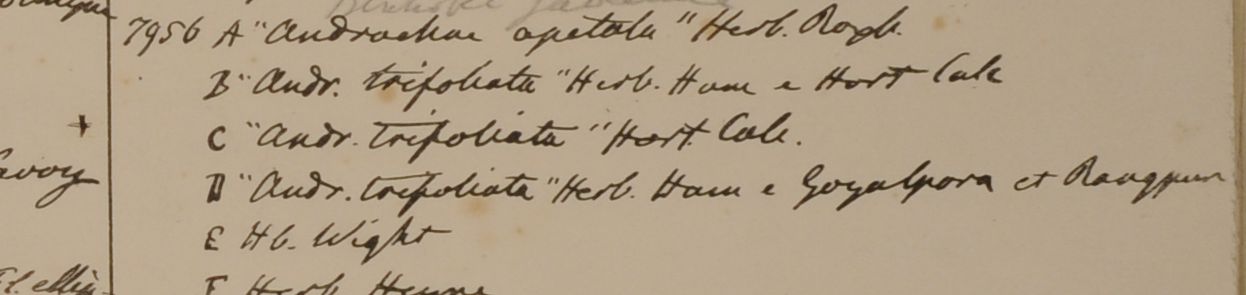 7956 A "Andrachne apetala" Herb. Roxb.
B "Andr. trifoliata" Herb. Ham e Hort Calc
C "Andr. trifoliata" Hort. Calc.
D "Andr. trifoliata" Herb. Ham e Goyalpora et Rangpur
E Hb. Wight
F Herb. Heyne